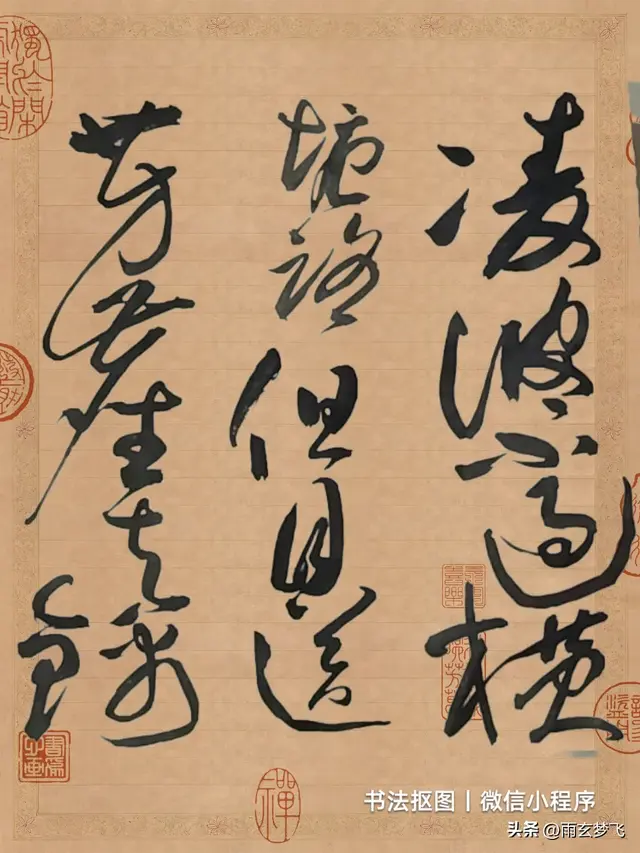 凌波不過橫
塘路但目送
芳塵去錦
禪
书法抠图丨微信小程序
头条 @雨玄梦飞